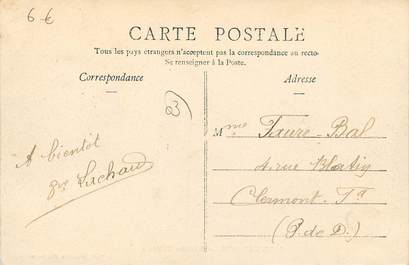 6 €
CARTE POSTALE
Tous les pays étrangers n'acceptent pas la correspondance au recto-
Se renseigner à la Poste.
Correspondance
Adresse
23
Mme Faure-Bal
A bientôt
4 rue Blatin
Lachaud
Clermont-Fd
(P. de D.)